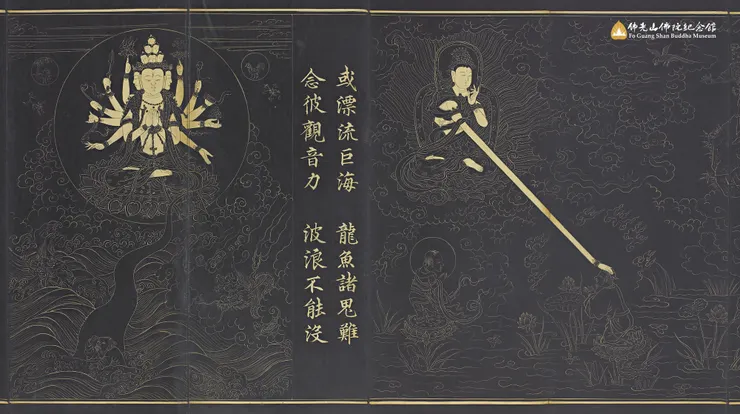 佛光山佛陀紀念館
Fo Guang Shan Buddha Museum
或漂流巨海 龍魚諸鬼難
念彼觀音力 波浪不能沒